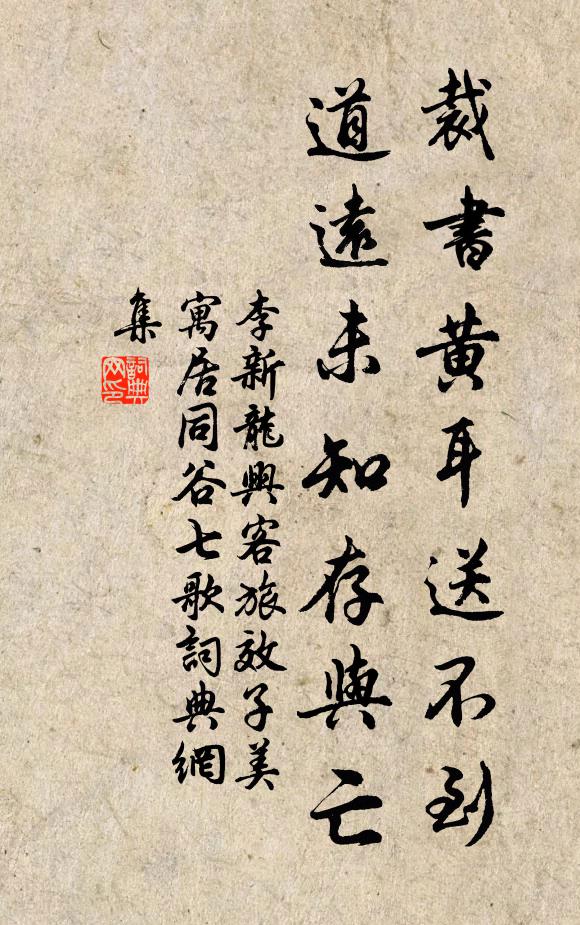 裁書黃耳送不到
道遠未知存與亡
李新龍興客旅效子美
寓居同谷七歌詞典網
集
詞典
网印